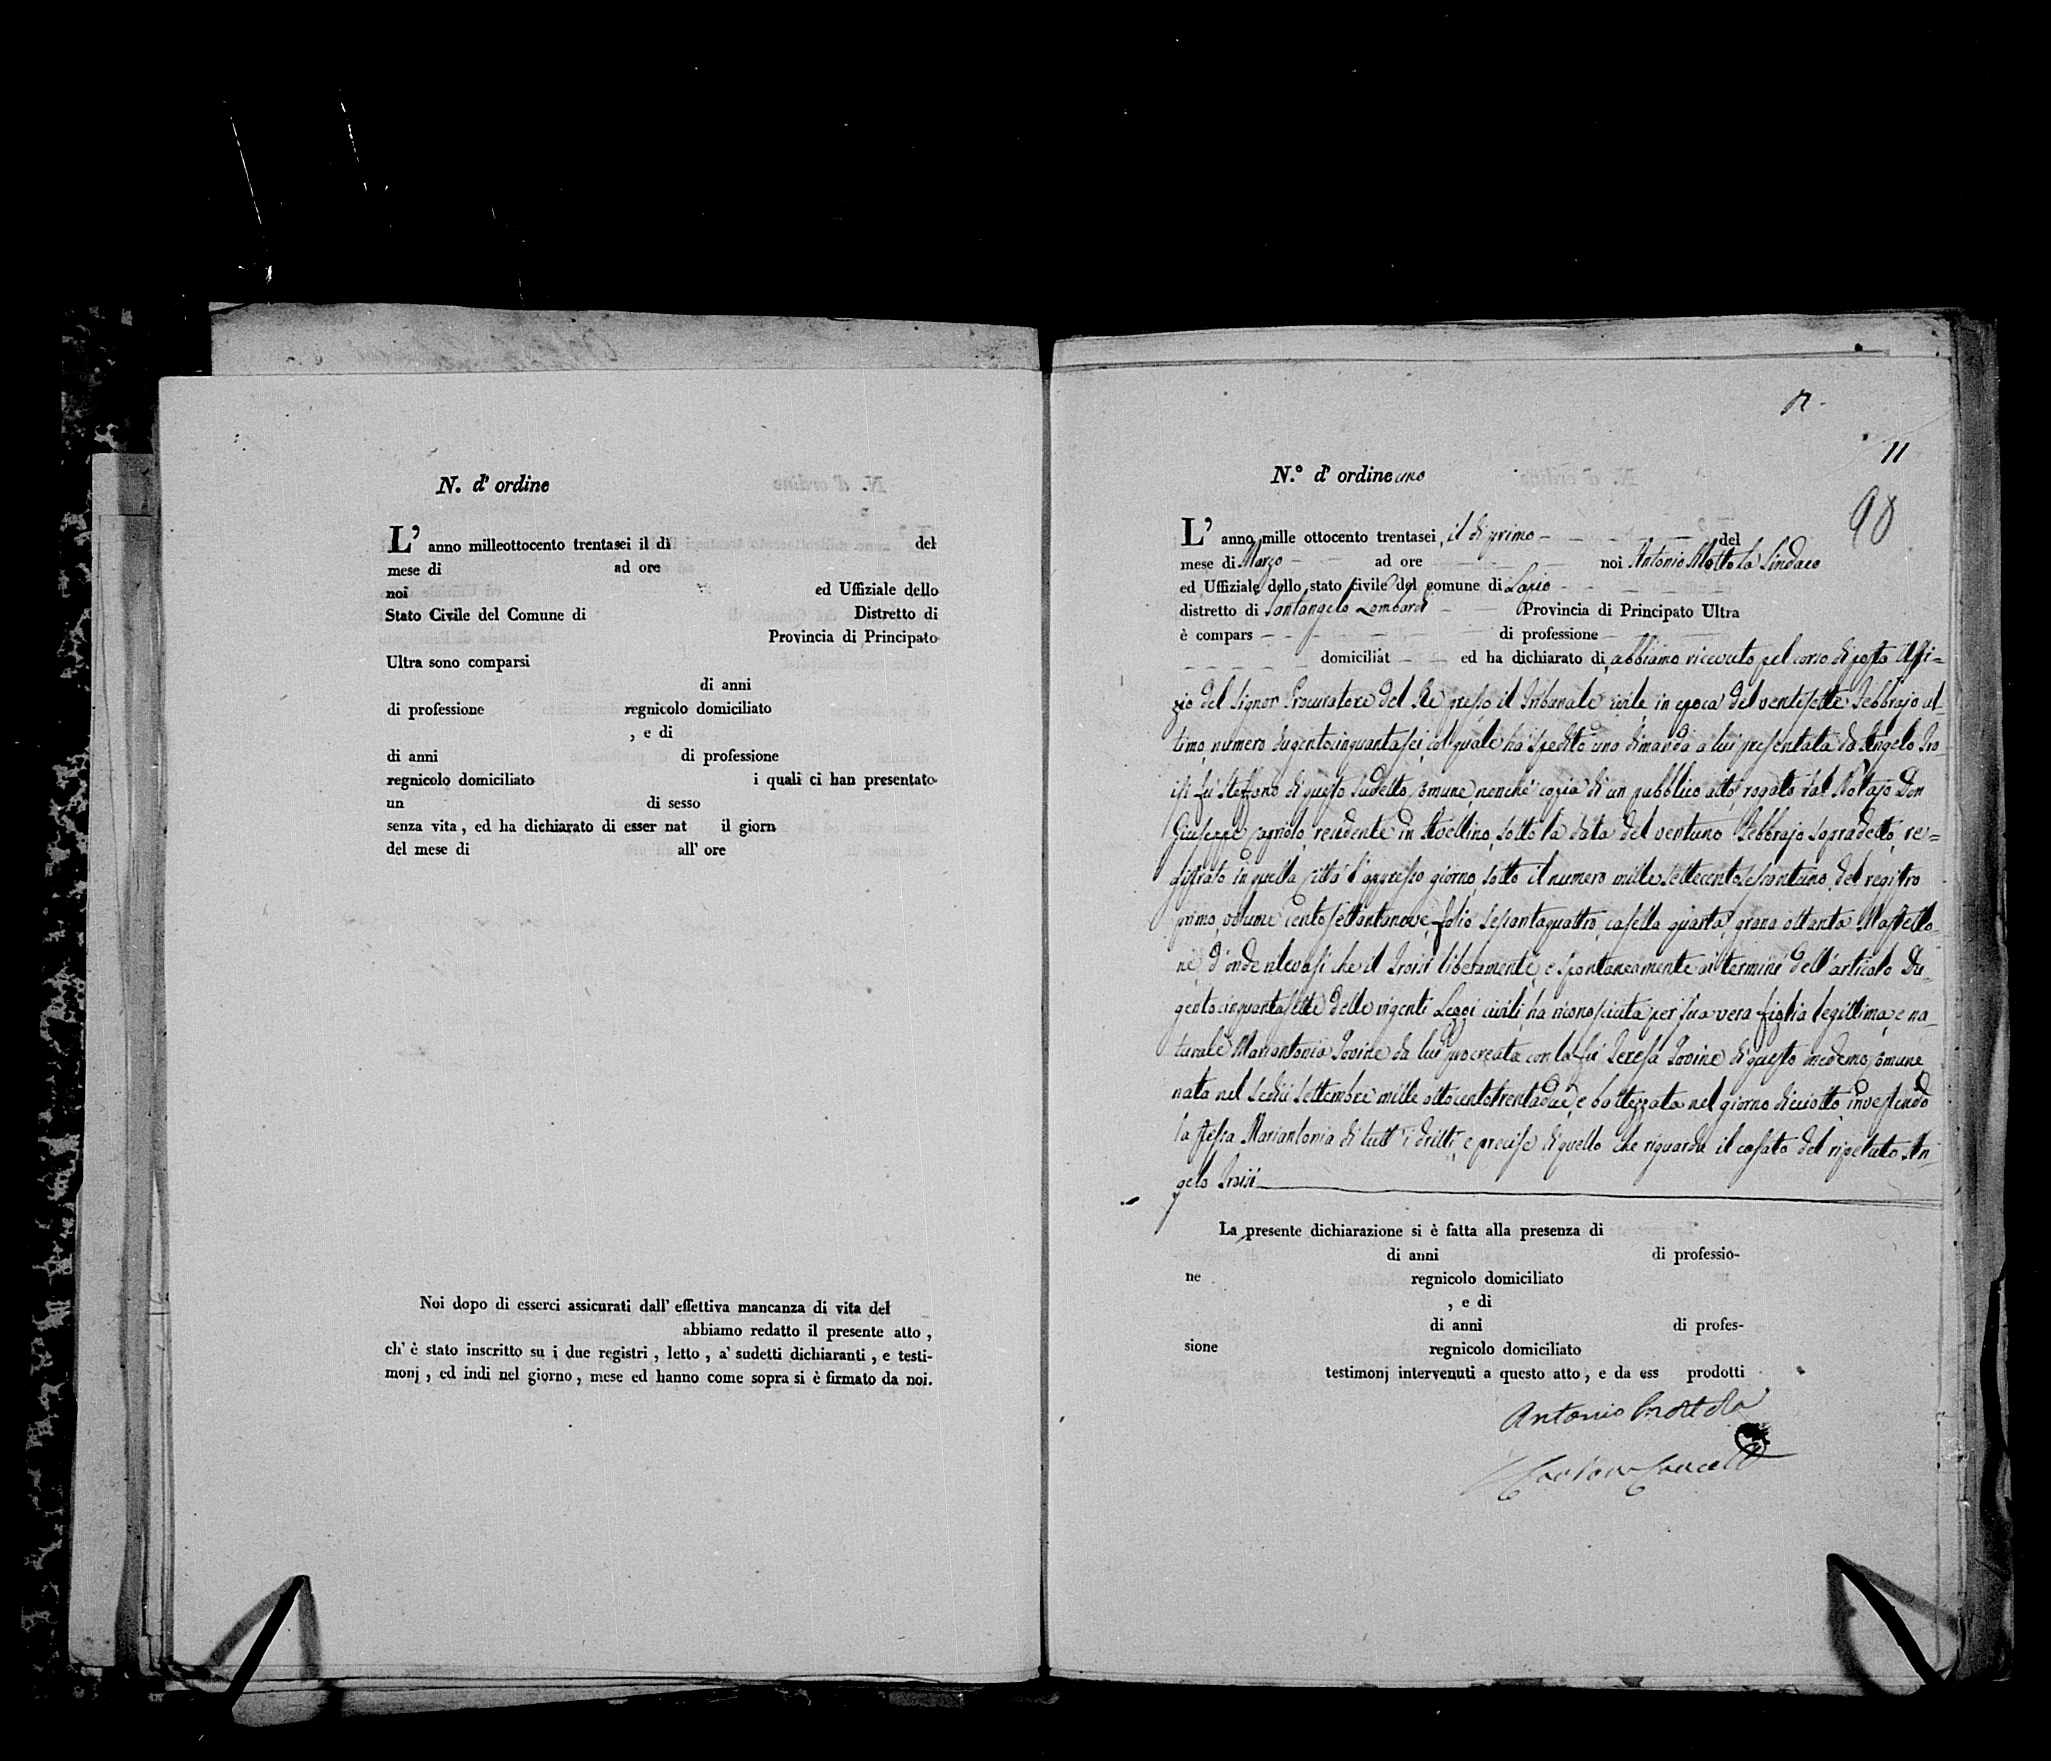 N. d' ordine
L' anno milleottocento trentasei il dì del
mese di ad ore
noi ed Uffiziale dello
Stato Civile del Comune di Distretto di
Provincia di Principato
Ultra sono comparsi
di anni
di professione regnicolo domiciliato
, e di
di anni di professione
regnicolo domiciliato i quali ci han presentato
un di sesso
senza vita, ed ha dichiarato di esser nat il giorn
del mese di all' ore
Noi dopo di esserci assicurati dall' effettiva mancanza di vita del
abbiamo redatto il presente atto,
ch' è stato inscritto su i due registri, letto, a' sudetti dichiaranti, e testi-
monj, ed indi nel giorno, mese ed hanno come sopra si è firmato da noi.
11
N.° d' ordine uno
98
L' anno mille ottocento trentasei, il dì primo del
mese di Marzo ad ore noi Antonio Mottola Sindaco
ed Uffiziale dello stato civile del comune di
distretto di Santangelo Lombardi Provincia di Principato Ultra
è compars di professione
domiciliat ed ha dichiarato di abbiamo ricevuto pel corso di posto Uffi=
zio del Signor Procuratore del Re presso il Tribunale civile in epoca del ventisette Febbrajo ul-
timo, numero dugentocinquantasei, col quale ha spedito una dimanda a lui presentata da Angelo Tro-
isi fu Steffano di questo sudetto Comune, nonché copia di un pubblico atto, rogato dal Notajo Don
Giuseppe residente in Avellino, sotto la data del ventuno Febbrajo sopradetto, re=
gistrato in quella Città l'appresso giorno, sotto il numero mille settecento sessantuno, del registro
primo, volume cento settantanove, folio sessantaquattro, casella quarta, grana ottanta Mastello-
ne, d'onde rilevasi che il Troisi liberamente, e spontaneamente ai termini dell'articolo Du-
gentocinquantasette delle vigenti Leggi civili, ha riconosciuta per sua vera figlia legittima, e na-
turale Mariantonia Iovine da lui procreata con la fu Teresa Iovine di questo medemo Comune
nata nel sedici Settembre mille ottocento trentadue, e battezzata nel giorno diciotto, investendo
la stessa Mariantonia di tutt'i dritti, e precise di quello che riguarda il casato del ripetuto An-
gelo Troisi
La presente dichiarazione si è fatta alla presenza di
di anni di professio-
ne regnicolo domiciliato
, e di
di anni di profes-
sione regnicolo domiciliato
testimonj intervenuti a questo atto, e da ess prodotti
Antonio Mottola